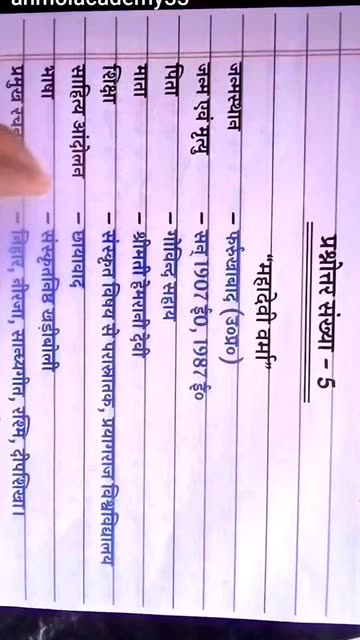 anmolacademy55
प्रश्नोत्तर संख्या - 5
"महादेवी वर्मा"
जन्मस्थान - फर्रुखाबाद (उ०प्र०)
जन्म एवं मृत्यु - सन् 1907 ई०, 1987 ई०
पिता - गोविन्द सहाय
माता - श्रीमती हेमरानी देवी
शिक्षा - संस्कृत विषय से परास्नातक, प्रयागराज विश्वविद्यालय
साहित्य आंदोलन - छायावाद
भाषा - संस्कृतनिष्ठ खड़ीबोली
प्रमुख - निहार, नीरजा, सान्ध्यगीत, रश्मि, दीपशिखा।